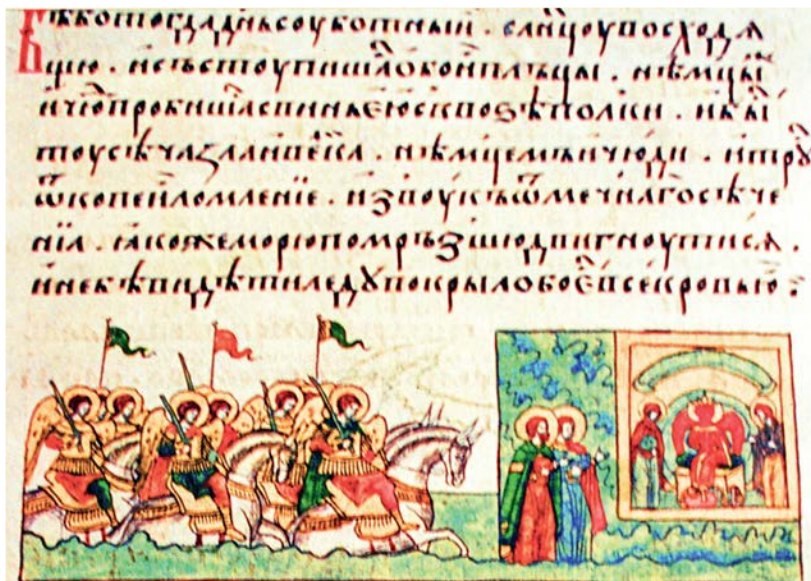 Бѣ бо тогда днь соуботныи . слнцоу восходѧ
щю . и състоупишасѧ обои плъцы . нѣмцы
и чю прошибишасѧ свинѧею сквозѣ полки . и бы
тоу сѣча зла и велика . нѣмцемъ и чюди . и трꙋ
ѿ копеи ломленїе . и звоукъ ѿ мечнаго сѣче
нїа ꙗкоже морю помръзшю двигноутисѧ .
и не бѣ видѣти ледꙋ покрыло бо есть все кровью :